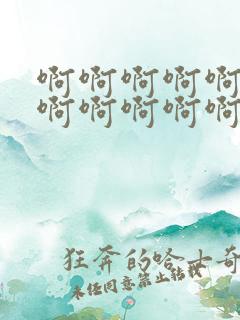 啊啊啊啊啊
啊啊啊啊啊
狂奔的哈士奇
未经同意禁止转载